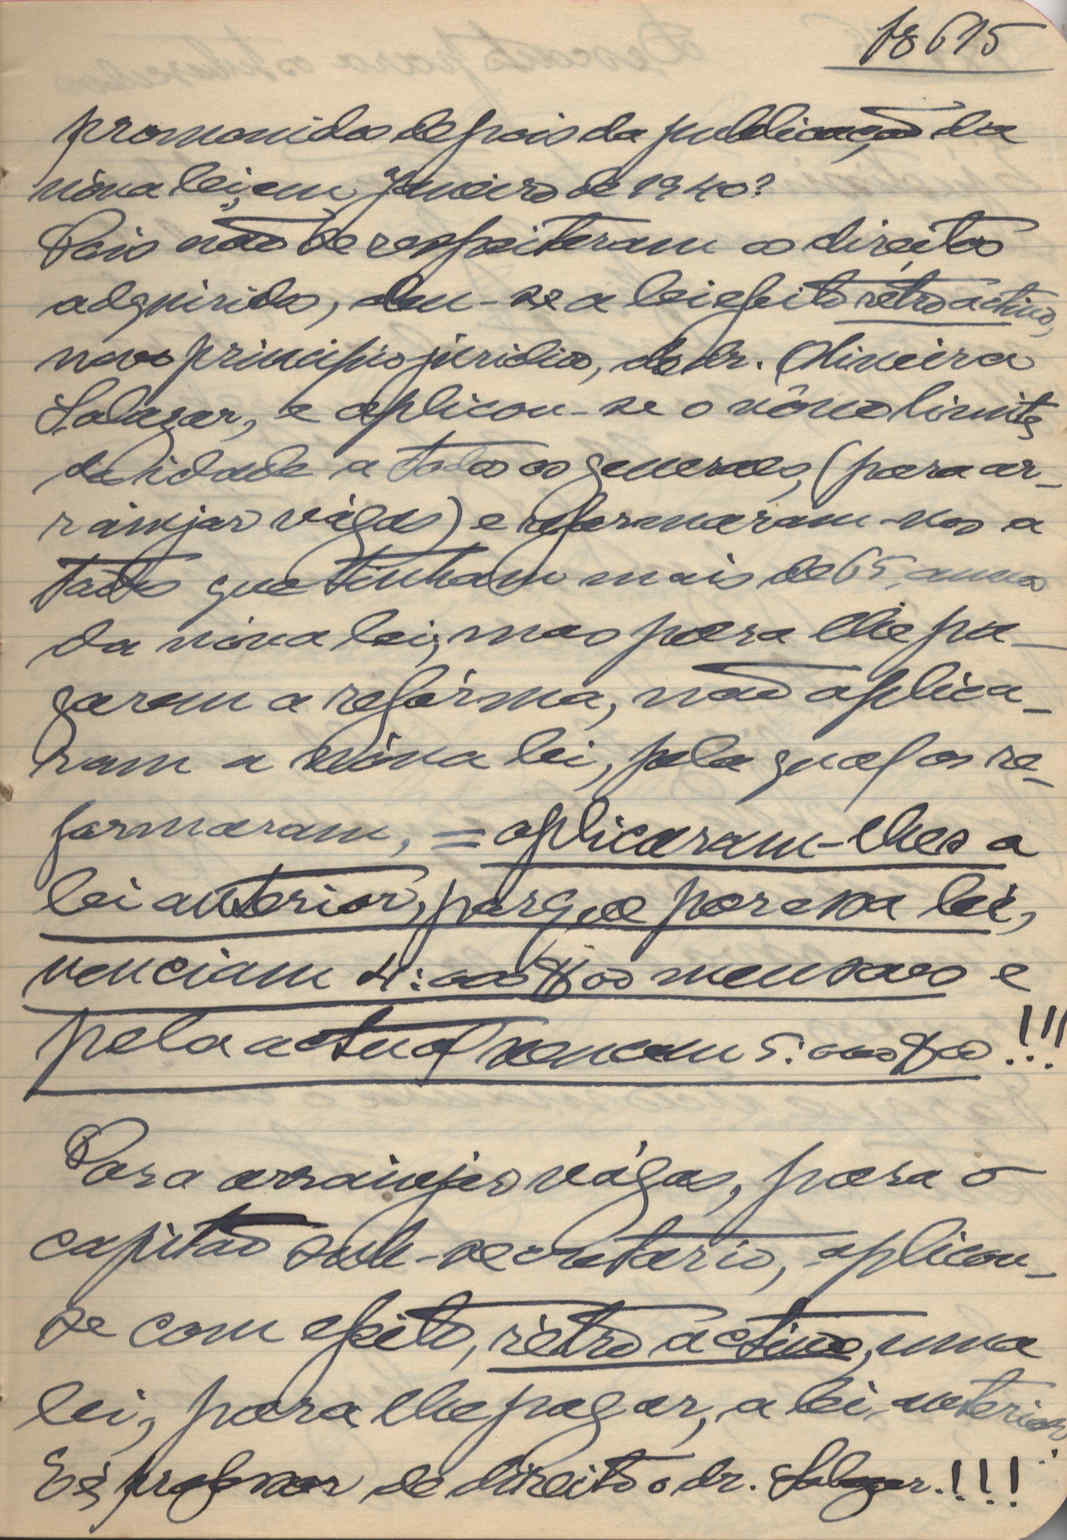 18615
promovidos depois da publicação da
nóva lei, em Janeiro de 1940?
Pois não se respeitaram os direitos
adquiridos, deu-se a lei efeito rétroactivo,
novo principio juridico, do dr. Oliveira
Salazar, e aplicou-se o nôvo limite,
de idade a todos os generaes, (para ar-
ranjar vágas) e reformaram-nos a
todos que tinham mais de 65 annos
da nóva lei, mas para lhe pa-
garem a refórma, não aplica-
ram a nóva lei, pela qual os re-
formaram, = aplicaram-lhes a
lei anterior, porque por essa lei,
venciam 4:000$00 mensaes e
pela actual vencem 5:000$00!!!
Para arranjar vágas, para o
capitão sub-secretario, aplicou-
se com efeito, rétro activo, uma
lei, para lhe pagar, a lei anterior
E é professor de direito o dr. Salazar.!!!